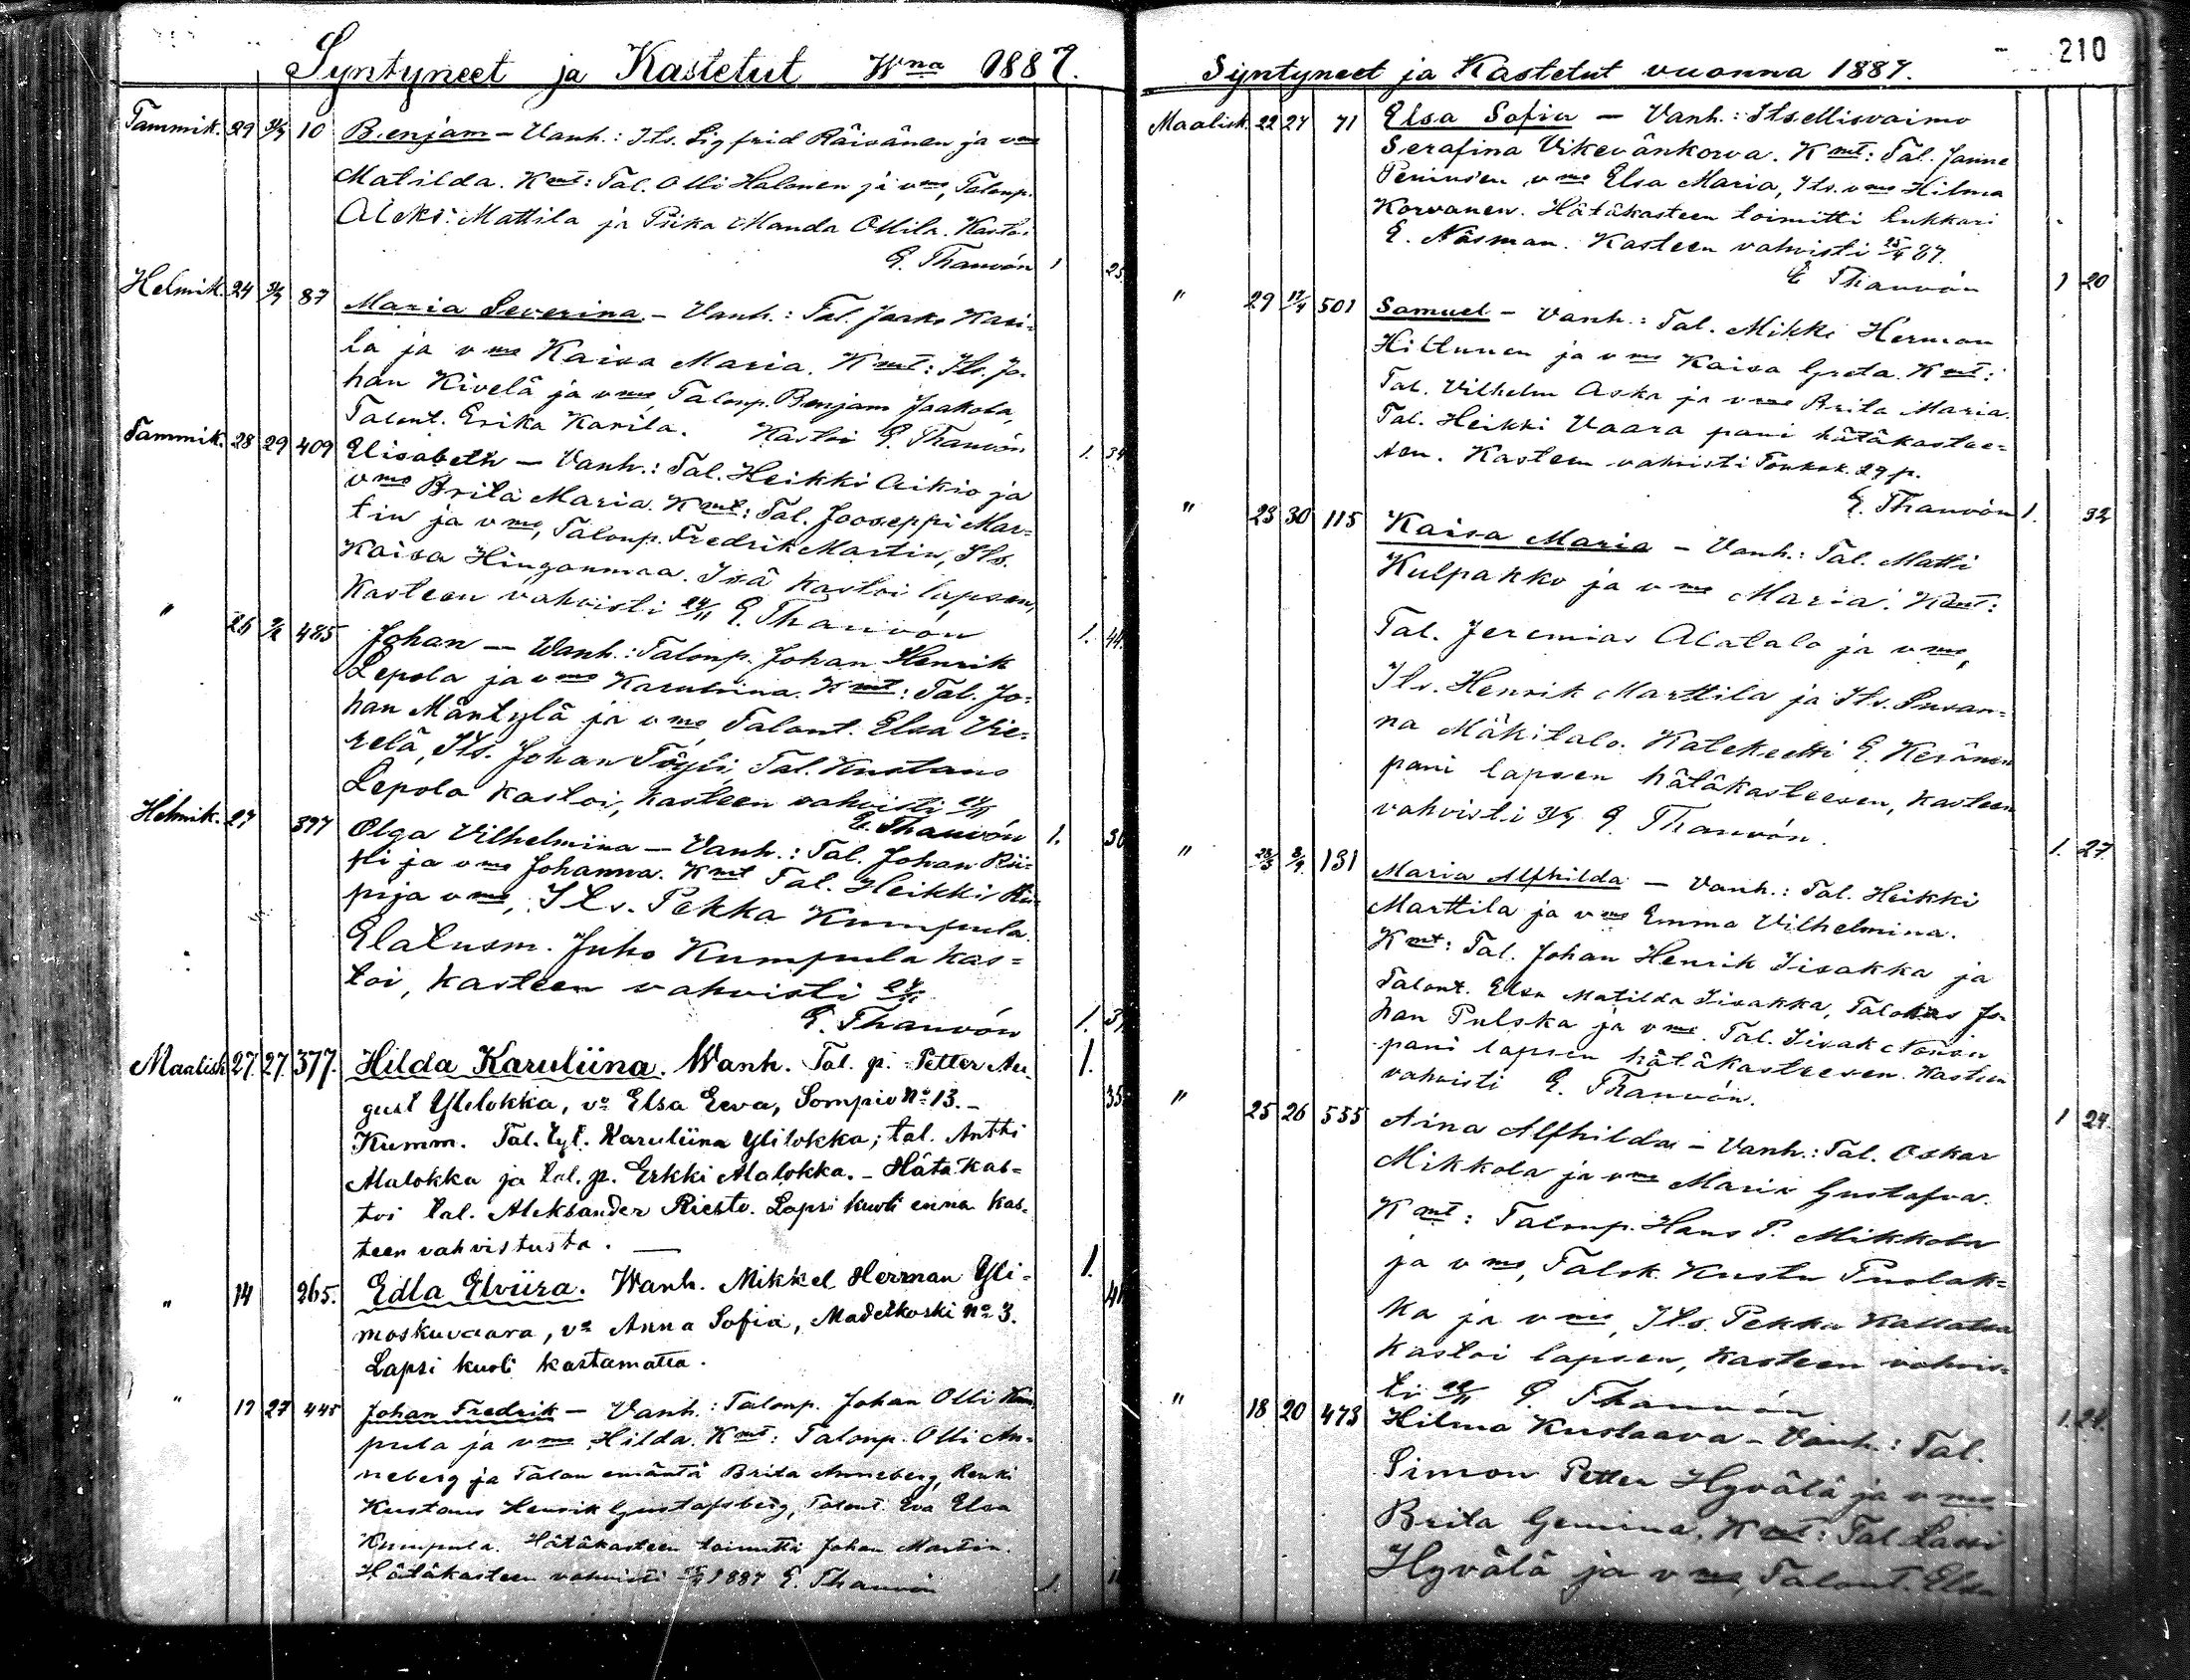 Syntyneet ja Kastetut Wna 1887.
Tammik. 29 31/3 10 Benjam - Vanh.: Its. Sigfrid Räisänen ja vmo
Matilda. Kmt: Tal. Olli Halonen ja vmo, Talonp.
Aleks. Mattila ja Piika Manda Ollila. Kastoi
E. Thauvón 1 25.
Helmik. 24 87 Maria Severina. - Vanh.: Tal. Jaako Kari-
la ja vmo Kaisa Maria. Kmt: Its. Jo-
han Kivelä ja vmo, Talonp. Benjam Jaakola,
Talont. Erika Karila. Kastoi E. Thauvón 1. 34
Tammik. 28 29 409 Elisabeth - Vanh.: Tal. Heikki Aikio ja
vmo Brita Maria. Kmt: Tal. Jooseppi Mar-
tin ja vmo, Talonp. Fredrik Martin, Its.
Kaisa Hinganmaa. Isä kastoi lapsen,
Kasteen vahvisti 24/11 E. Thauvón 1. 44.
" 26 485 Johan - Wanh.: Talonp. Johan Henrik
Lepola ja vmo Karuliina. Kmt: Tal. Jo-
han Mäntylä ja vmo, Talont. Elsa Vie-
relä, Its. Johan Töyli, Tal. Kustaus
Lepola kastoi, kasteen vahvisti 24/11
E. Thauvón 1. 30
Helmik. 27 397 Olga Vilhelmiina - Vanh.: Tal. Johan Rii-
pi ja vmo Johanna. Kmt Tal. Heikki Rii-
pi ja vmo, Its. Pekka Kumpula.
Elatusm. Juho Kumpula kas-
toi, kasteen vahvisti
E. Thauvón 1.
Maalisk 27. 27. 377. Hilda Karuliina. Wanh. Tal. p. Petter Au-
gust Ylilokka, vo Elsa Eeva, Sompio No 13. - 1. 35.
Kumm. Tal. tyt. Karuliina Ylilokka; tal. Antti
Alalokka ja tal. p. Erkki Alalokka. - Hätäkas-
toi tal. Aleksander Riesto. Lapsi kuoli enna kas-
teen vahvistusta. -
" 14 265. Edla Elviira. Wanh. Mikkel Herman Yli- 1. 41
moskuvaara, vo Anna Sofia, Madetkoski No 3.
Lapsi kuoli kastamatta.
" 19 27 445 Johan Fredrik - Vanh.: Talonp. Johan Olli Kum-
pula ja vmo Hilda. Kmt: Talonp. Olli An-
neberg ja Talon emäntä Brita Anneberg, Renki
Kustaus Henrik Gustafsberg, Talont. Eva Elsa
Kumpula. Hätäkasteen toimitti Johan Martin.
Hätäkasteen vahvisti 1887 E. Thauvón 1.
210
Syntyneet ja Kastetut vuonna 1887.
Maalisk. 22 27 71 Elsa Sofia - Vanh.: Itsellisvaimo
Serafina Vikevänkorva. Kmt: Tal. Janne
Peninsen vmo Elsa Maria, Its. vmo Hilma
Korvanen. Hätäkasteen toimitti lukkari
E. Näsman. Kasteen vahvisti 25/4 87.
E Thauvón 1 20
" 29 17/4 501 Samuel - Vanh.: Tal. Mikki Herman
Hiltunen ja vmo Kaisa Greta. Kmt:
Tal. Vilhelm Aska ja vmo Brita Maria.
Tal. Heikki Vaara pani hätäkastee-
sen. Kasteen vahvisti Toukok. 29 p.
E. Thauvón 1. 32
" 23 30 115 Kaisa Maria - Vanh.: Tal. Matti
Kulpakko ja vmo Maria. Kmt:
Tal. Jeremias Alatalo ja vmo,
Its. Henrik Marttila ja Its. Susan-
na Mäkitalo. Katekeetti E. Keränen
pani lapsen hätäkasteesen, kasteen
vahvisti E. Thauvón. 1. 27.
" 28/3 3/4 131 Maria Alfhilda - Vanh.: Tal. Heikki
Marttila ja vmo Emma Vilhelmina.
Kmt: Tal. Johan Henrik Iisakka ja
Talont. Elsa Matilda Iisakka, Talokas Jo-
han Pulska ja vmo. Tal. Iisak
pani lapsen hätäkasteesen. Kasteen
vahvisti E. Thauvón. 1 24.
" 25 26 555 Aina Alfhilda - Vanh.: Tal. Oskar
Mikkola ja vmo Maria Gustafva.
Kmt: Talonp. Hans P. Mikkola
ja vmo, Talok. Kustu Puolak-
ka ja vmo, Its. Pekka
kastoi lapsen, kasteen vahvis-
ti E. Thauvón 1. 24.
" 18 20 473 Hilma Kustaava - Vanh.: Tal.
Simon Petter Hyvälä ja vmo
Brita. Kmt: Tal. Lassi
Hyvälä ja vmo, Talont. Elsa